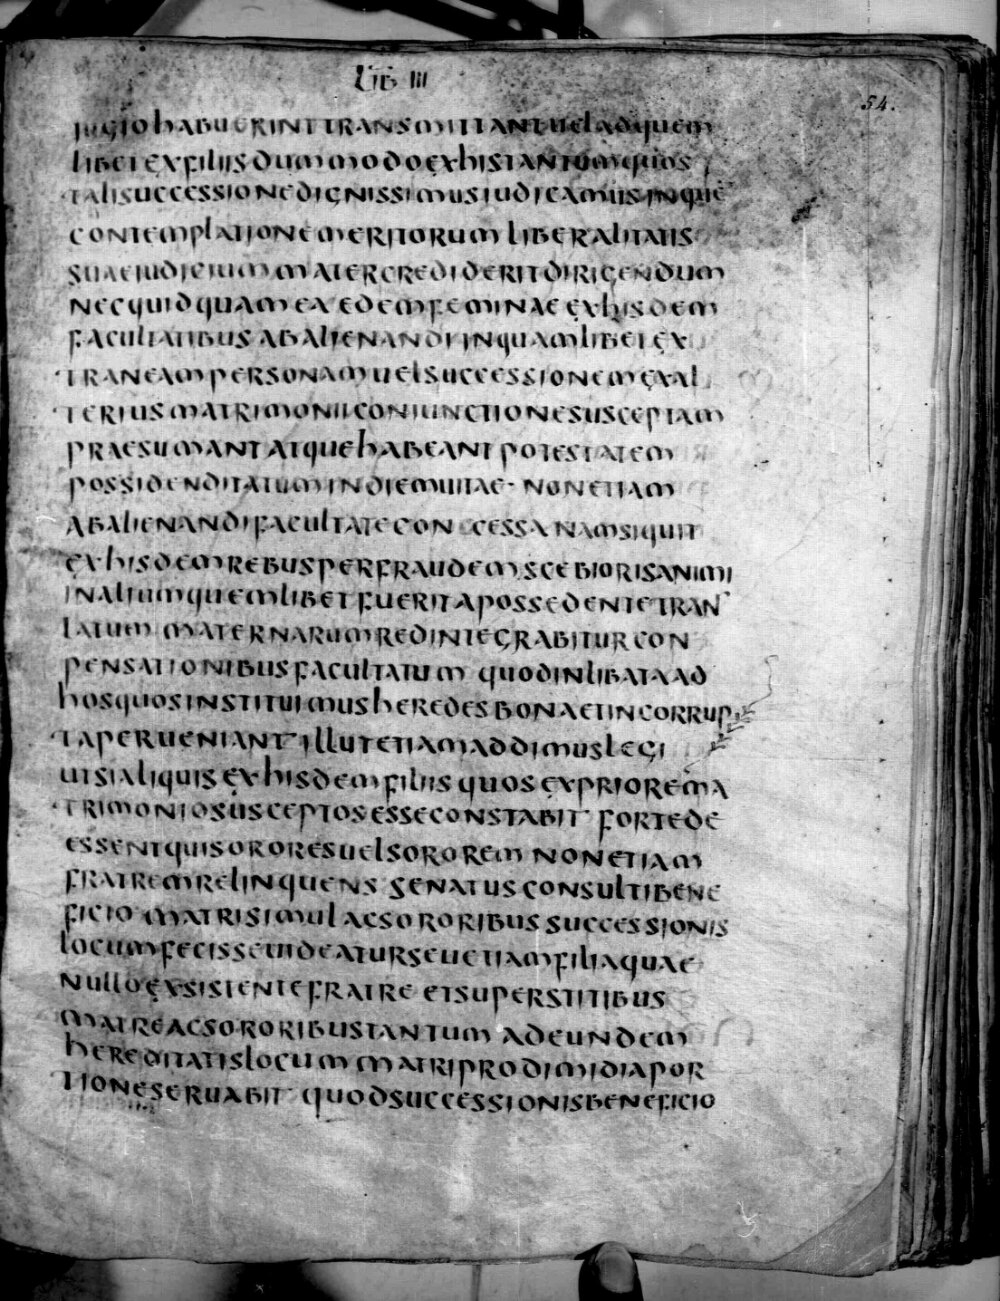 LIB III
54.
IUGIO HABUERINT TRANSMITTANT UEL AD QUEM
LIBET EX FILIIS DUMMODO EX HIS TANTUM QUOS
TALI SUCCESSIONE DIGNISSIMUS IUDICAMUS IN QUĒ
CONTEMPLATIONE MERITORUM LIBERALITATIS
SUAE IUDICIUM MATER CREDIDERIT DIRIGENDUM
NEC QUIDQUAM EAEDEM FEMINAE EX HISDEM
FACULTATIBUS ABALIENANDI IN QUAMLIBET EX
TRANEAM PERSONAM UEL SUCCESSIONEM EX AL
TERIUS MATRIMONII CONIUNCTIONE SUSCEPTAM
PRAESUMANT ATQUE HABEANT POTESTATEM
POSSIDENDI TATUM IN DIEM UITAE · NON ETIAM
ABALIENANDI FACULTATE CONCESSA NAM SI QUIT
EX HISDEM REBUS PER FRAUDEM SCEBIORIS ANIMI
IN ALIUM QUEMLIBET FUERIT A POSSEDENTE TRAN
LATUM MATERNARUM REDINTEGRABITUR CON
PENSATIONIBUS FACULTATUM QUOD INLIBATA AD
HOS QUOS INSTITUIMUS HEREDES BONA ET INCORRUP
TA PERUENIANT ILLUT ETIAM ADDIMUS LEGI
UI SI ALIQUIS EX HISDEM FILIIS QUOS EX PRIORE MA
TRIMONIO SUSCEPTOS ESSE CONSTABIT FORTE DE
ESSENT QUI SORORES UEL SOROREM NON ETIAM
FRATREM RELINQUENS SENATUS CONSULTI BENE
FICIO MATRI SIMUL AC SORORIBUS SUCCESSIONIS
LOCUM FECISSE UIDEATUR SEU ETIAM FILIA QUAE
NULLO EXSISTENTE FRATRE ET SUPERSTITIBUS
MATRE AC SORORIBUS TANTUM AD EUNDEM
HEREDITATIS LOCUM MATRI PRO DIMIDIA POR
TIONE SERUABIT QUOD SUCCESSIONIS BENEFICIO